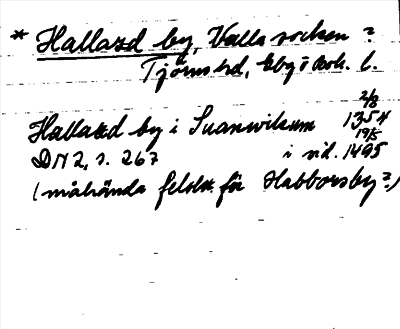 * Hallazd by, Valla socken?
Tjörns hd, Gbg o Boh. l.
2/8
Hallazd by i Suanvikum 1354
19/5
DN 2, s. 267 i vid. 1495
(måhända felskr. för Habborsby?)